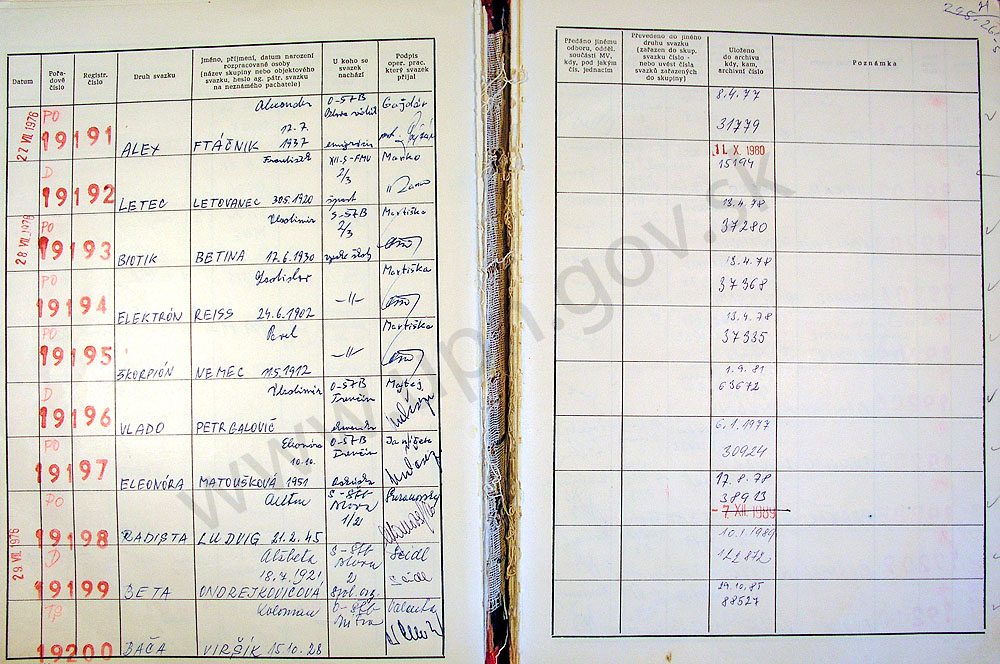 Datum
Pořadové číslo
Registr. číslo
Druh svazku
Jméno, příjmení, datum narození
rozpracované osoby
(název skupiny nebo objektového
svazku, heslo ag. pátr. svazku
na neznámého pachatele)
U koho se
svazek
nachází
Podpis
oper. prac.
který svazek
přijal
27 VII. 1976
PO
19191
ALEX
Alexander
12.7.
1937
FTÁČNIK
Gajdár
D
19192
LETEC
František
LETOVANEC 30.5.1920
XII.S-FMV
2/3
Marko
28 VII. 1976
PO
19193
BIOTIK
Vladimír
BETINA 12.6.1930
S-ŠTB
2/3
Martiška
PO
19194
ELEKTRÓN
REISS 24.6.1902
-//-
Martiška
PO
19195
ŠKORPIÓN
Pavel
NEMEC 11.5.1912
-//-
Martiška
D
19196
VLADO
Vladimír
PETRGALOVIČ
O-ŠTB
Trenčín
PO
19197
ELEONÓRA
Eleonóra
10.10.
MATOUŠKOVÁ 1951
O-ŠTB
Trenčín
29. VII. 1976
PO
19198
RADISTA
LUDVIG 21.2.45
S-ŠtB
1/21
D
19199
BETA
Alžbeta
18.7.1921
ONDREJKOVIČOVÁ
S-ŠtB
2
Seidl
TP
19200
BAČA
Koloman
VIRŠÍK 15.10.28
O-ŠtB
Nitra
Valenta
Předáno jinému
odboru, odděl.
součásti MV,
kdy, pod jakým
čís. jednacím
Převedeno do jiného
druhu svazku
(zařazen do skup.
svazku číslo -
nebo uvést čísla
svazků zařazených
do skupiny)
Uloženo
do archivu
kdy, kam,
archivní číslo
Poznámka
8.4.77
31779
11. X. 1980
15194
13.4.78
37280
13.4.78
37368
13.4.78
37335
1.9.81
63672
6.1.1977
30924
17.8.78
38913
- 7. XII. 1989
10.1.1989
29.10.85
88527
www.upn.gov.sk